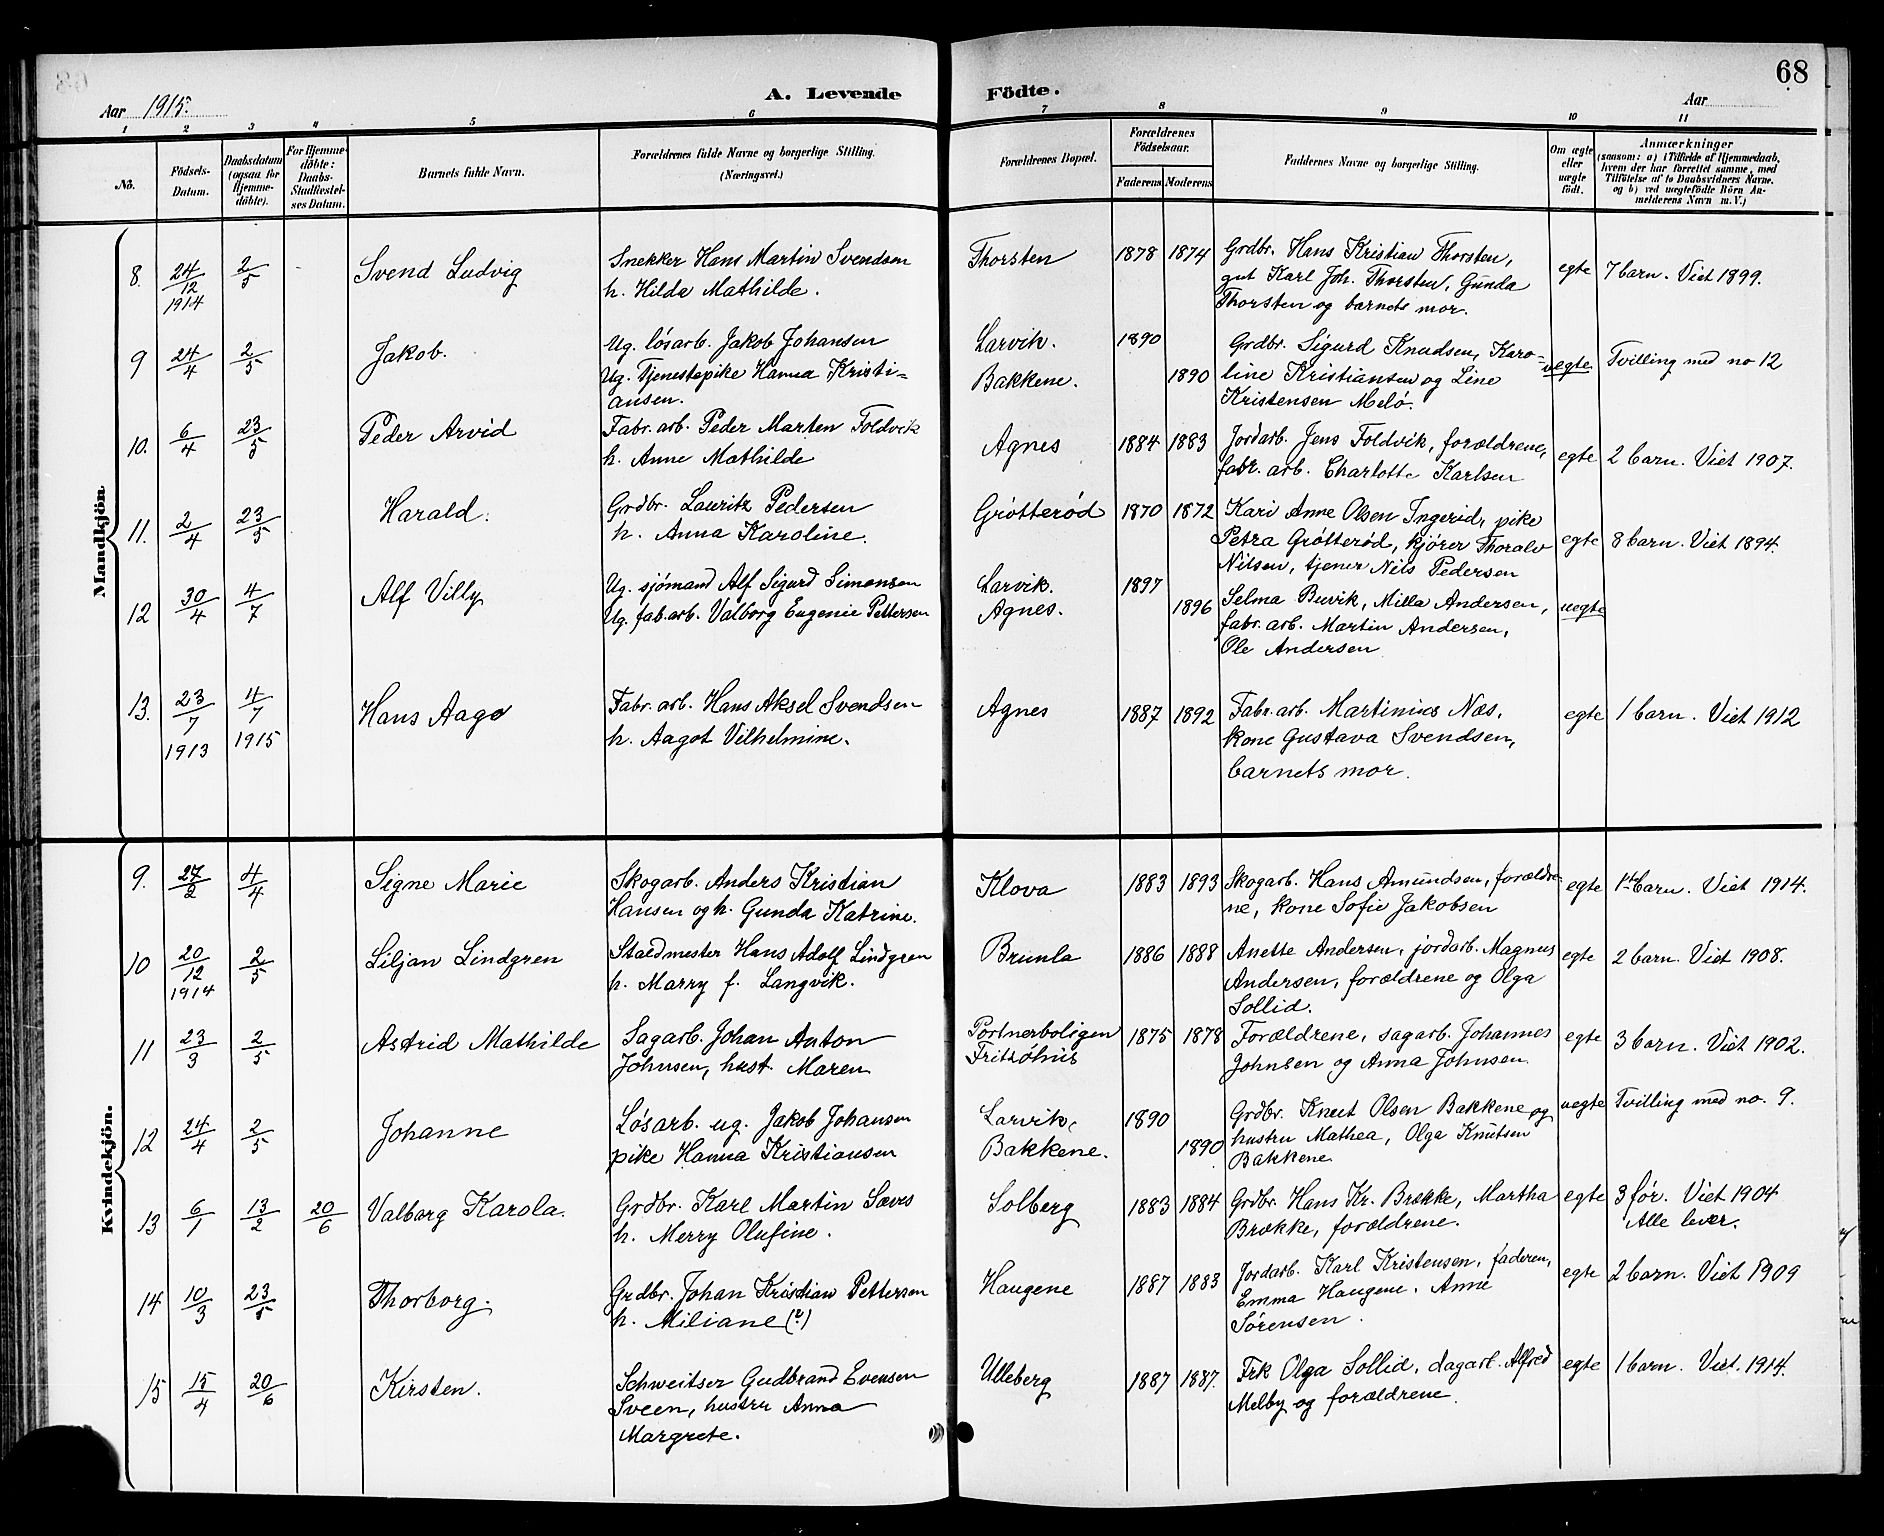 68
Aar 1915.
A. Levende Födte.
Aar
1 2 3 4 5 6 7 8 9 10 11
No.
Födsels-Datum.
Daabsdatum (ogsaa for Hjemme-döbte).
For Hjemme-döbte: Daabs-Stadfæstel-ses Datum.
Barnets fulde Navn.
Forældrenes fulde Navne og borgerlige Stilling. (Næringsvei.)
Forældrenes Bopæl.
Forældrenes Födselsaar.
Faderens Moderens
Faddernes Navne og borgerlige Stilling.
Om ægte eller uægte födt.
Anmærkninger
(saasom: a) i Tilfælde af Hjemmedaab, hvem der har forrettet samme, med Tilföielse af to Daabsvidners Navne. og b) ved uægtefödte Börn An-melderens Navn m. V.)
Mandkjön
8. 24/12 1914 2/5 Svend Ludvig
Snekker Hans Martin Svendsen
h. Hilda Mathilde.
Thorsten 1878 1874
Grdbr. Hans Kristian Thorsten,
gut Karl Joh. Thorsten, Gunda
Thorsten og barnets mor.
egte 7 barn. Viet 1899.
9 24/4 2/5 Jakob.
Ug. løsarb. Jakob Johansen
Ug. Tjenestepike Hanna Kristi-
ansen.
Larvik. 1890
Bakkene. 1890
Grdbr. Sigurd Knudsen, Karo-
line Kristiansen og Line
Kristensen Melø.
uegte Tvilling med no 12
10. 6/4 23/5 Peder Arvid
Fabr. arb. Peder Marten Foldvik
h. Anne Mathilde
Agnes 1884 1883
Jordarb. Jens Foldvik, forældrene,
fabr. arb. Charlotte Karlsen
egte 2 barn. Viet 1907.
11. 2/4 23/5 Harald.
Grdbr. Lauritz Pedersen
h. Anna Karoline.
Grøtterød 1870 1872
Kari Anne Olsen Ingerid, pike
Petra Grøtterød, kjører Thoralv
Nilsen, tjener Nils Pedersen
egte 8 barn. Viet 1894.
12 30/4 4/7 Alf Villy
Ug. sjømand Alf Sigurd Simonsen
Ug. fab. arb. Valborg Eugenie Pettersen
Larvik. 1897
Agnes. 1896
Selma Buvik, Milla Andersen,
fabr. arb. Martin Andersen,
Ole Andersen
uegte
13. 23/7 1913 4/7 1915 Hans Aage
Fabr. arb. Hans Aksel Svendsen
h. Aagot Vilhelmine.
Agnes 1887 1892
Fabr. arb. Martinius Næs,
kone Gustava Svendsen,
barnets mor.
egte 1 barn. Viet 1912
Kvindekjön.
9. 27/2 4/4 Signe Marie
Skogarb. Anders Kristian
Hansen og h. Gunda Katrine.
Klova 1883 1893
Skogarb. Hans Amundsen, forældre-
ne, kone Sofie Jakobsen
egte 1ste barn. Viet 1914.
10 20/12 1914 2/5 Liljan Lindgren
Staldmester Hans Adolf Lindgren
h. Marry f. Langvik.
Brunla 1886 1888
Anette Andersen, jordarb. Magnus
Andersen, forældrene og Olga
Sollid.
egte 2 barn. Viet 1908.
11 23/3 2/5 Astrid Mathilde
Sagarb. Johan Anton
Johnsen, hust. Maren
Portnerboligen
Fritzøhus
1875 1878
Forældrene, sagarb. Johannes
Johnsen og Anna Johnsen
egte 3 barn. Viet 1902.
12 24/4 2/5 Johanne
Løsarb. ug. Jakob Johansen
pike Hanna Kristiansen
Larvik, 1890
Bakkene. 1890
Grdbr. Knut Olsen Bakkene og
hustru Mathea, Olga Knutsen
Bakkene
uegte Tvilling med no. 9.
13 6/1 13/2 20/6 Valborg Karola.
Grdbr. Karl Martin Sæves
h. Merry Olufine.
Solberg 1883 1884
Grdbr. Hans Kr. Brække, Martha
Brække, forældrene.
egte 3 før. Viet 1904
Alle lever.
14 10/3 23/5 Thorborg.
Grdbr. Johan Kristian Pettersen
h. Miliane (?)
Haugene 1887 1883
Jordarb. Karl Kristensen, faderen,
Emma Haugene. Anne
Sørensen.
egte 2 barn. Viet 1909
15 15/4 20/6 Kirsten.
Schweitser Gudbrand Evensen
Sveen, hustru Anna
Margrete.
Ulleberg 1887 1887.
Frk Olga Sollid, dagarb. Alfred
Melby og forældrene
egte 1 barn. Viet. 1914.